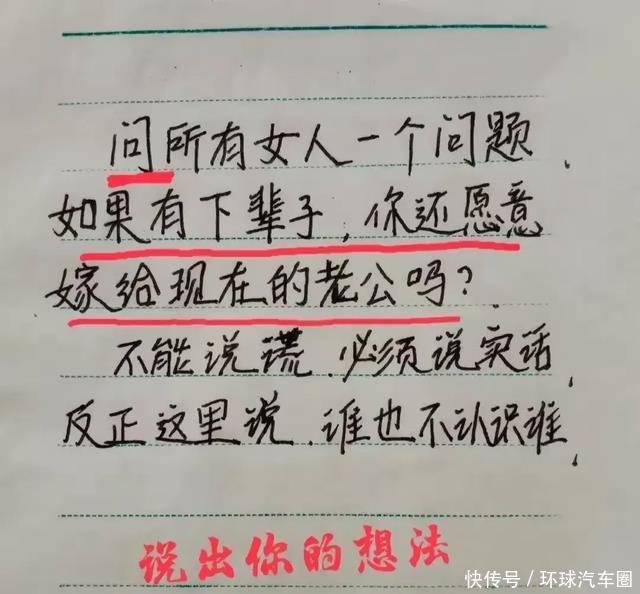 问所有女人一个问题.
如果有下辈子,你还愿意
嫁给现在的老公吗?
不能说谎.必须说实话
反正这里说.谁也不认识谁.
说出你的想法
快传号/环球汽车圈